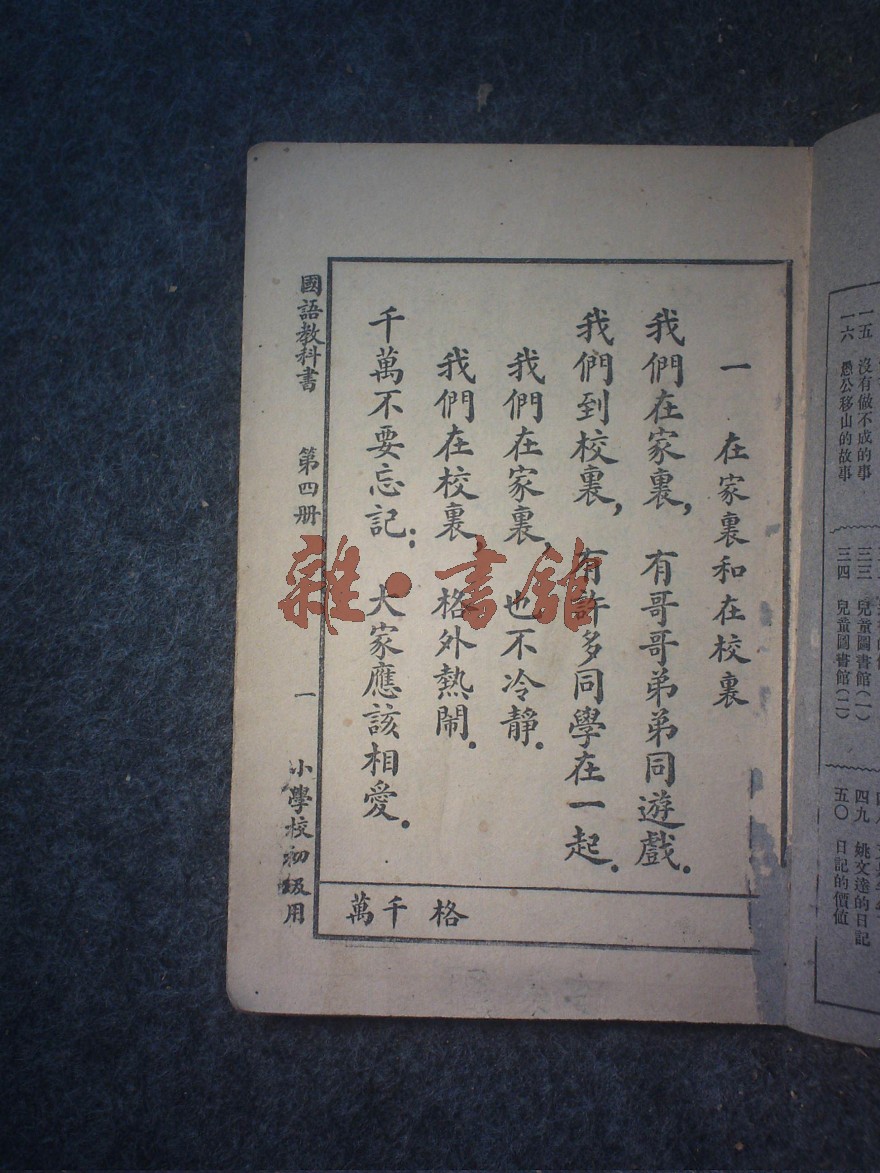 一 在家裏和在校裏
我們在家裏，有哥哥弟弟同遊戲。
我們到校裏，有許多同學在一起。
我們在家裏，也不冷靜。
我們在校裏，格外熱鬧。
千萬不要忘記：大家應該相愛。
格 千萬
國語教科書 第四册 一 小學校初級用
雜·書館
一五 沒有做不成的事
一六 愚公移山的故事
三三 兒童圖書館（一）
三四 兒童圖書館（二）
四九 姚文達的日記
五〇 日記的價值